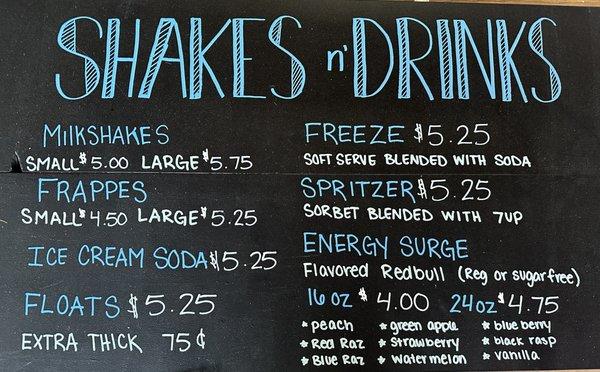 SHAKES n' DRINKS
MilkSHAKES
SMALL $5.00 LARGE $5.75
FRAPPES
SMALL $4.50 LARGE $5.25
ICE CREAM SODA $5.25
FLOATS $5.25
EXTRA THICK 75¢
FREEZE $5.25
SOFT SERVE BLENDED WITH SODA
SPRITZER $5.25
SORBET BLENDED WITH 7UP
ENERGY SURGE
Flavored Redbull (Reg or sugar free)
16 oz $4.00 24 oz $4.75
* peach * green apple * blue berry
* Red Raz * Strawberry * black rasp
* Blue Raz * watermelon * vanilla